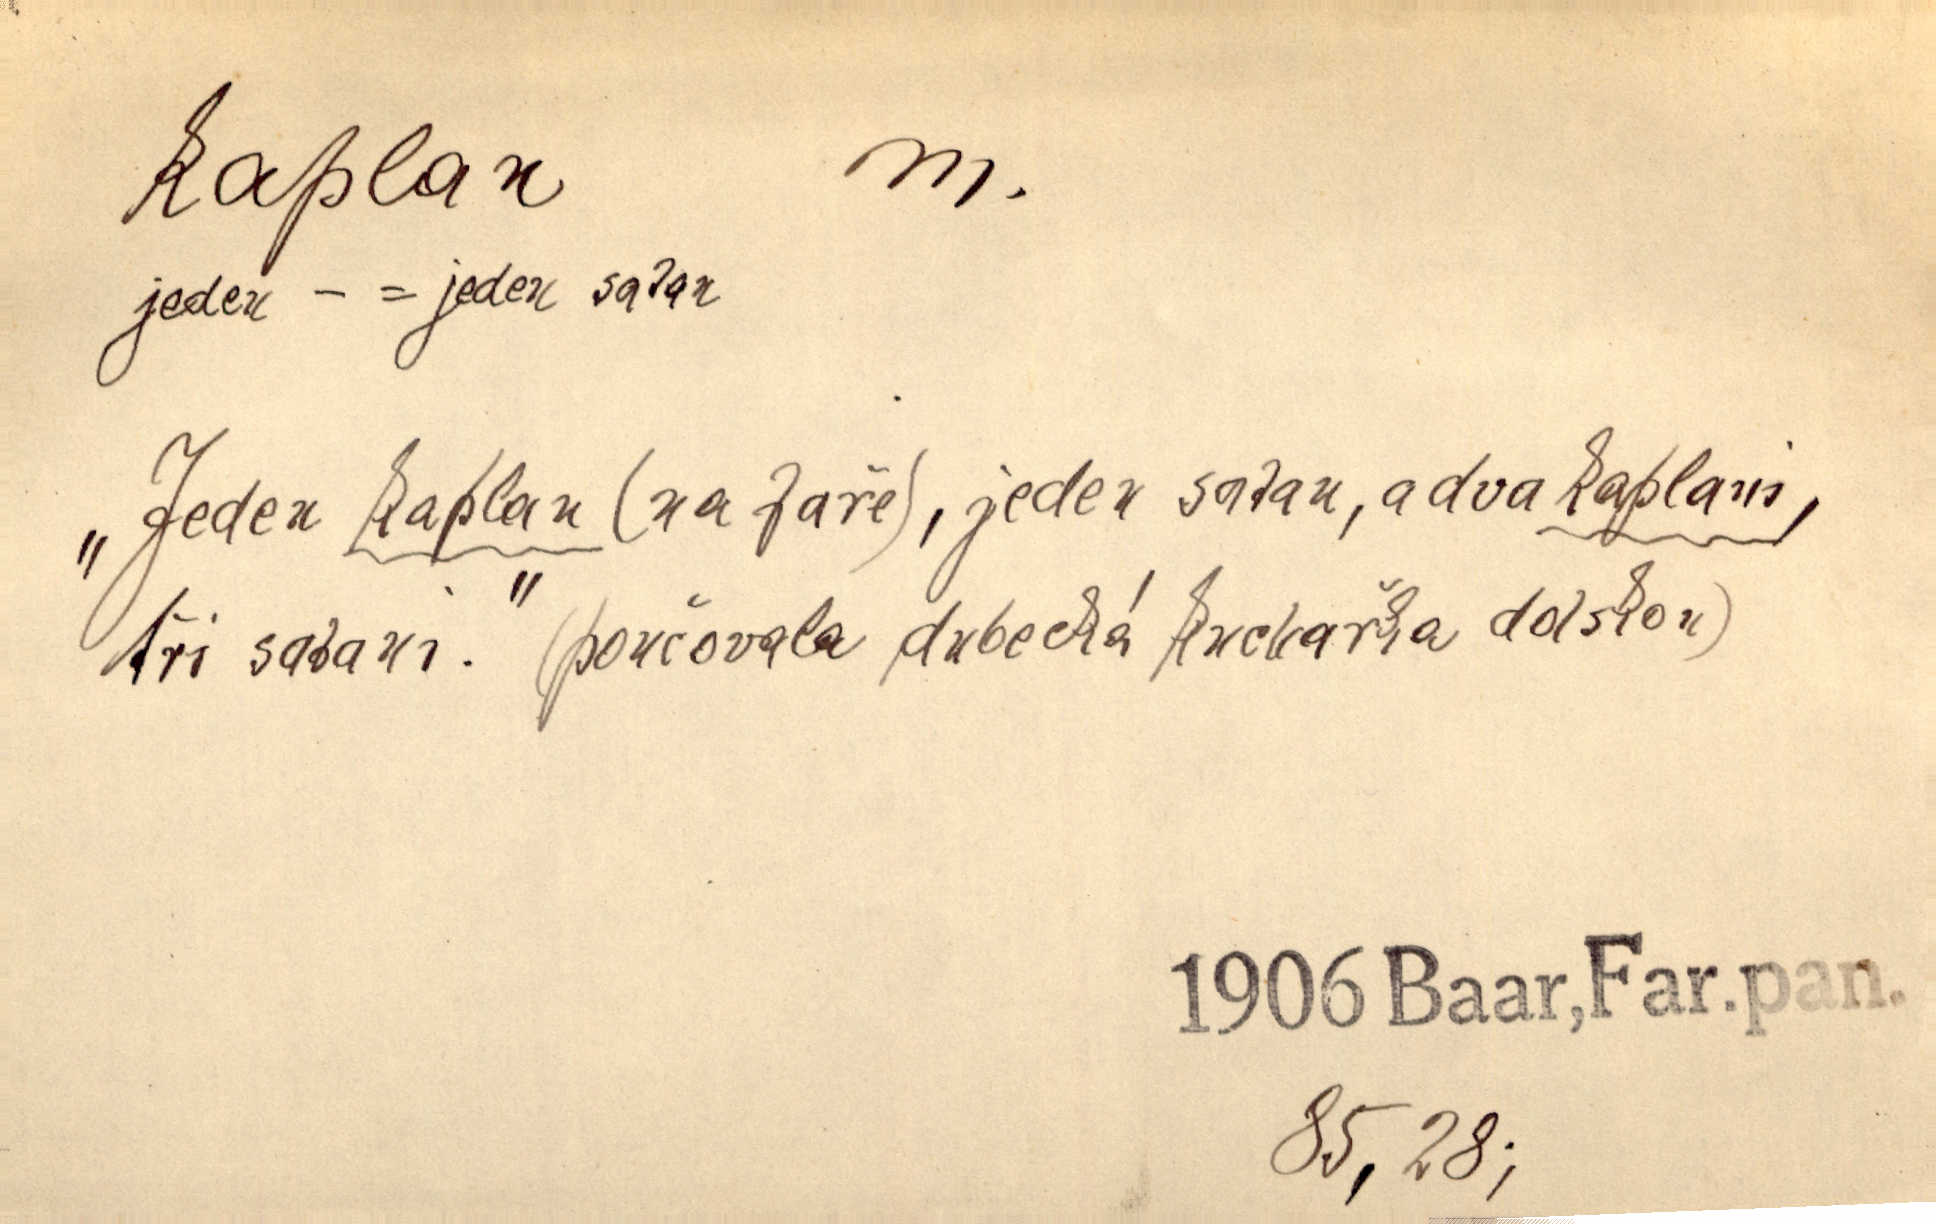 kaplan m.
jeden – = jeden satan
„Jeden kaplan (na faře), jeden satan, a dva kaplani,
tři satani." (poučovala dubecká kuchařka dolskou)
1906 Baar, Far. pan.
85, 28;